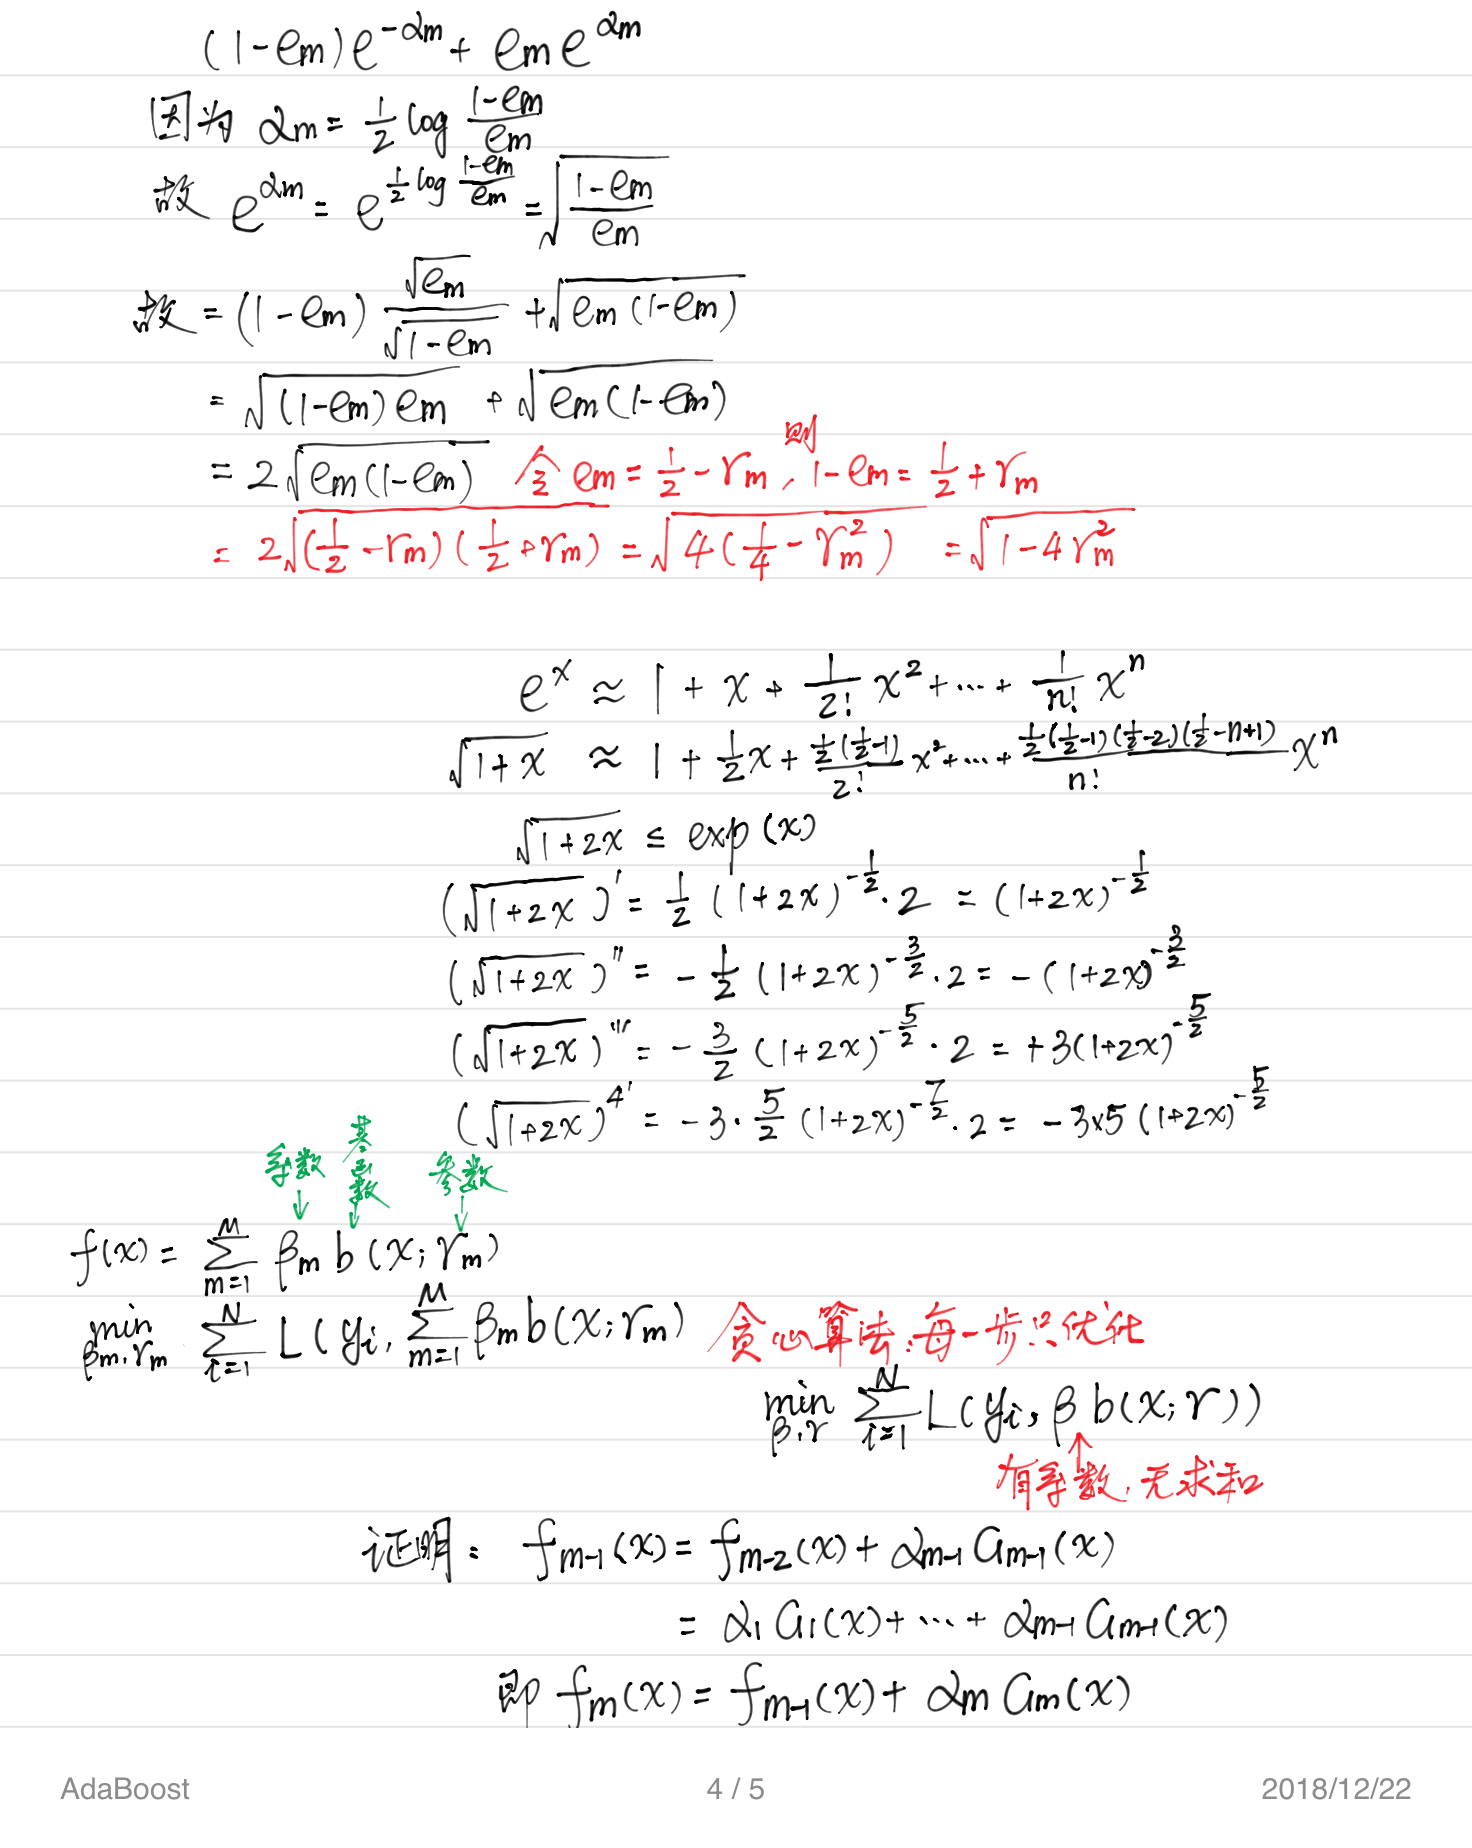 (1-em)e^{-αm} + em e^{αm}
因为 αm = 1/2 log (1-em)/em
故 e^{αm} = e^{1/2 log (1-em)/em} = √((1-em)/em)
故 = (1-em) √em/√(1-em) + √(em(1-em))
= √((1-em)em) + √(em(1-em))
= 2√(em(1-em)) 令 em = 1/2 - rm, 则 1-em = 1/2 + rm
= 2√((1/2-rm)(1/2+rm)) = √(4(1/4-rm²)) = √(1-4rm²)
e^x ≈ 1 + x + 1/2! x² + ... + 1/n! x^n
√(1+x) ≈ 1 + 1/2 x + (1/2(1/2-1))/2! x² + ... + (1/2(1/2-1)(1/2-2)(1/2-n+1))/n! x^n
√(1+2x) ≤ exp(x)
(√(1+2x))' = 1/2 (1+2x)^{-1/2}·2 = (1+2x)^{-1/2}
(√(1+2x))'' = -1/2 (1+2x)^{-3/2}·2 = -(1+2x)^{-3/2}
(√(1+2x))''' = -3/2 (1+2x)^{-5/2}·2 = +3(1+2x)^{-5/2}
(√(1+2x))^{4'} = -3·5/2 (1+2x)^{-7/2}·2 = -3×5(1+2x)^{-5/2}
系数 基函数 参数
f(x) = ∑_{m=1}^{M} βm b(x; rm)
min_{βm,rm} ∑_{i=1}^{N} L(yi, ∑_{m=1}^{M} βm b(x; rm) 贪心算法:每一步只优化
min_{β,r} ∑_{i=1}^{N} L(yi, β b(x; r))
有系数, 无求和
证明: f_{m-1}(x) = f_{m-2}(x) + α_{m-1} G_{m-1}(x)
= α1 G1(x) + ... + α_{m-1} G_{m-1}(x)
即 fm(x) = f_{m-1}(x) + αm Gm(x)
AdaBoost 4 / 5 2018/12/22